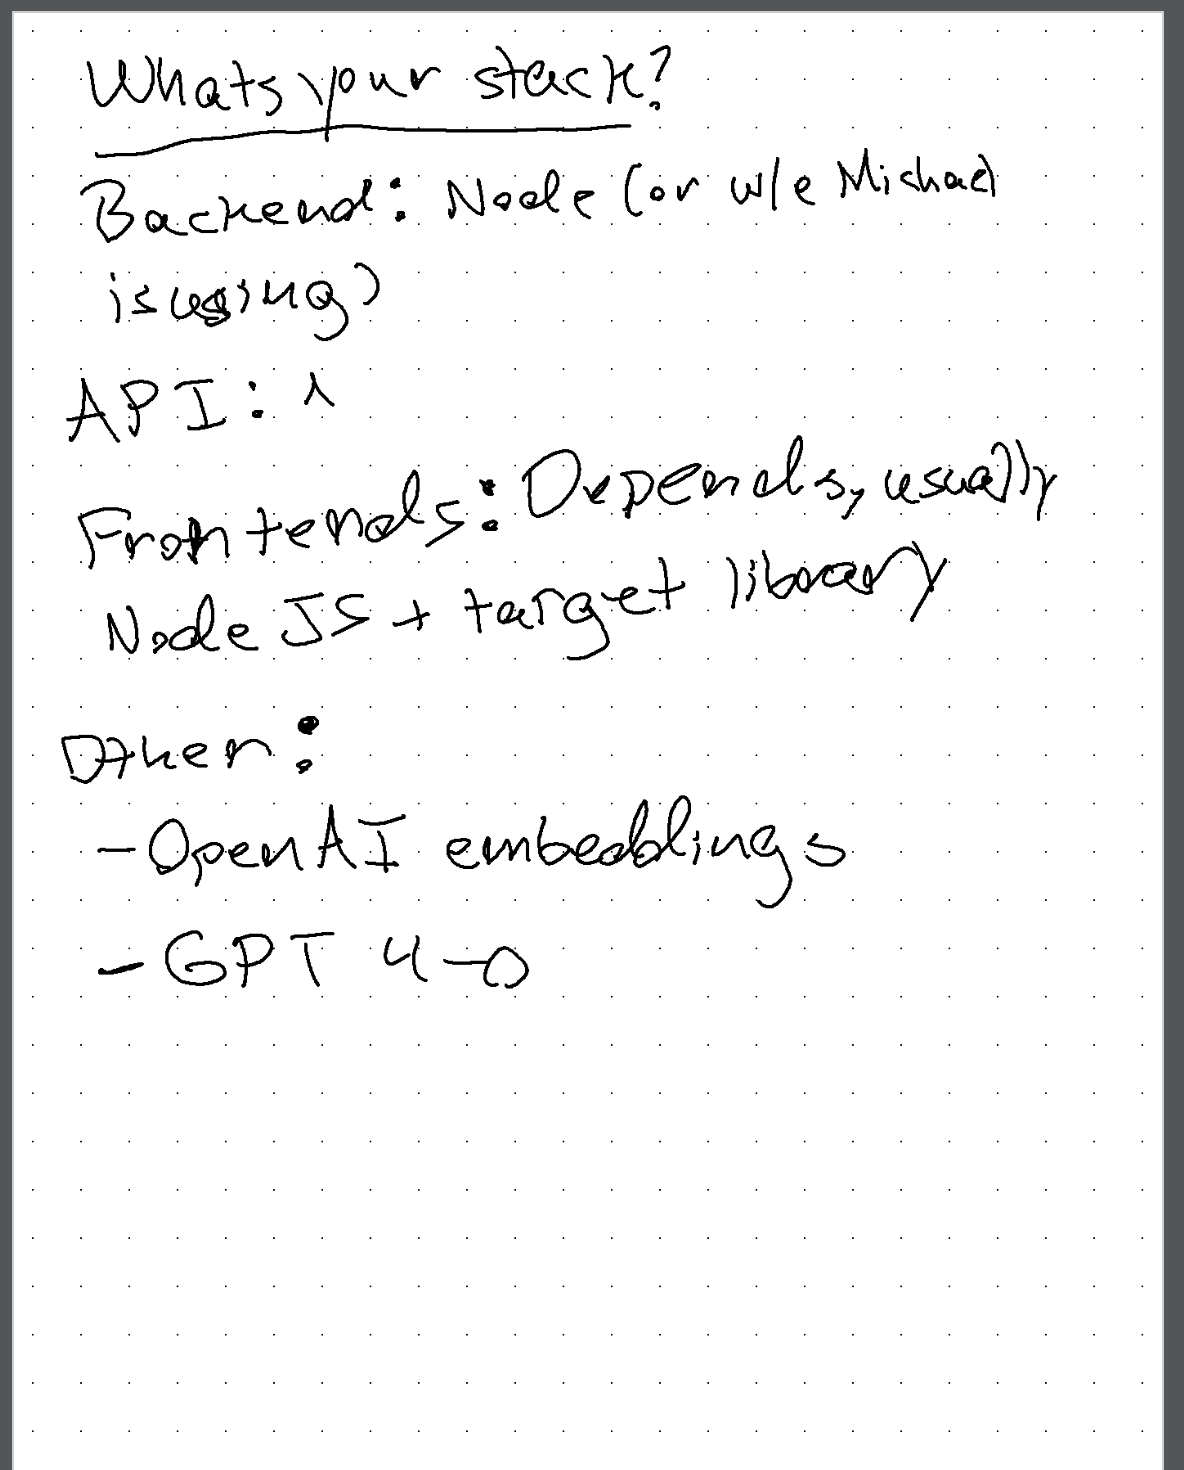 Whats your stack?
Backend: Node (or w/e Michael
is using)
API: ^
Frontends: Depends, usually
Node JS + target library
Other:
- OpenAI embeddings
- GPT 4-o